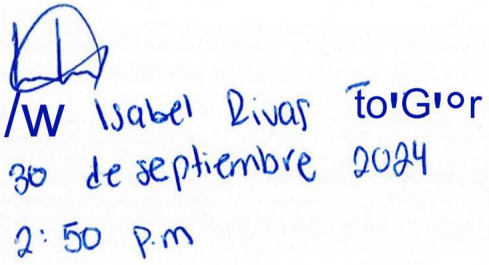 /w Isabel Rivas to'G'or
30 de septiembre 2024
2:50 p.m